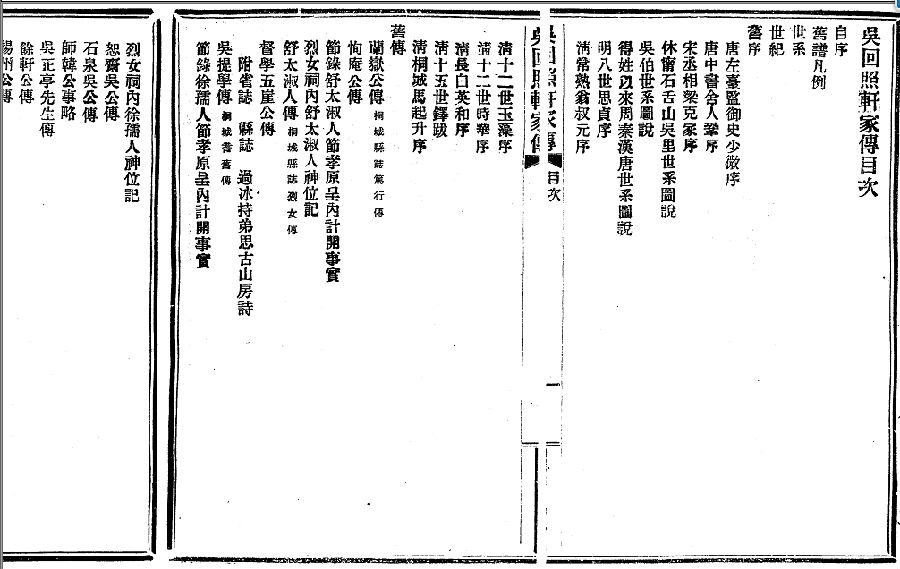 吳回照軒家傳目次
自序
舊譜凡例
世系
世紀
舊序
唐左臺監御史少微序
唐中書舍人鞏序
宋丞相梁克家序
休甯石舌山吳里世系圖說
吳伯世系圖說
得姓以來周秦漢唐世系圖說
明八世思貞序
清常熟翁叔元序
吳回照軒家傳
目次
一
清十二世玉藻序
清十二世時華序
清長白英和序
清十五世鐸跋
清桐城馬起升序
舊傳
蘭嶽公傳 桐城縣誌篤行傳
恂庵公傳
節錄舒太淑人節孝原呈內計開事實
烈女祠內舒太淑人神位記
舒太淑人傳 桐城縣誌列女傳
督學五崖公傳
附省誌 縣誌 過冰持弟思古山房詩
吳提學傳 桐城耆舊傳
節錄徐孺人節孝原呈內計開事實
烈女祠內徐孺人神位記
恕齋吳公傳
石泉吳公傳
師韓公事略
吳正亭先生傳
餘軒公傳
楊州公傳